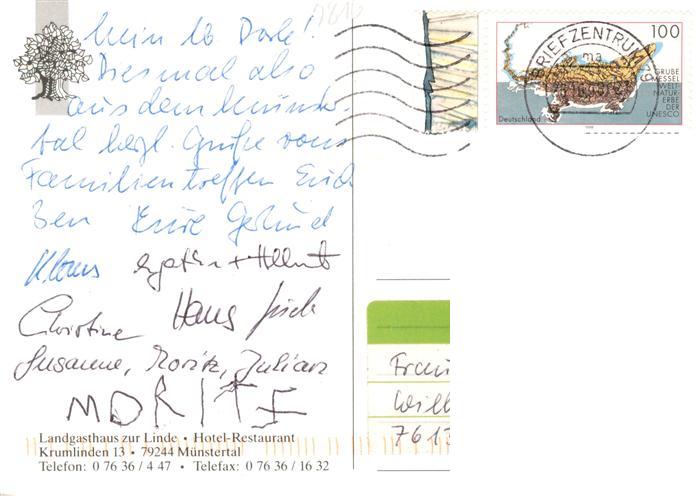 Mein lb Dorle!
Diesmal also
aus dem Münster-
tal herzl. Grüße vom
Familientreffen
Eure Gertrud
Klaus Agatha + Helmut
Christine Hans
Susanne, Moritz, Julian
MORITZ
Landgasthaus zur Linde • Hotel-Restaurant
Krumlinden 13 • 79244 Münstertal
Telefon: 0 76 36 / 4 47 • Telefax: 0 76 36 / 16 32
100
GRUBE
MESSEL
WELT-
NATUR-
ERBE
DER
UNESCO
Deutschland
BRIEFZENTRUM
Frau
Will
7613